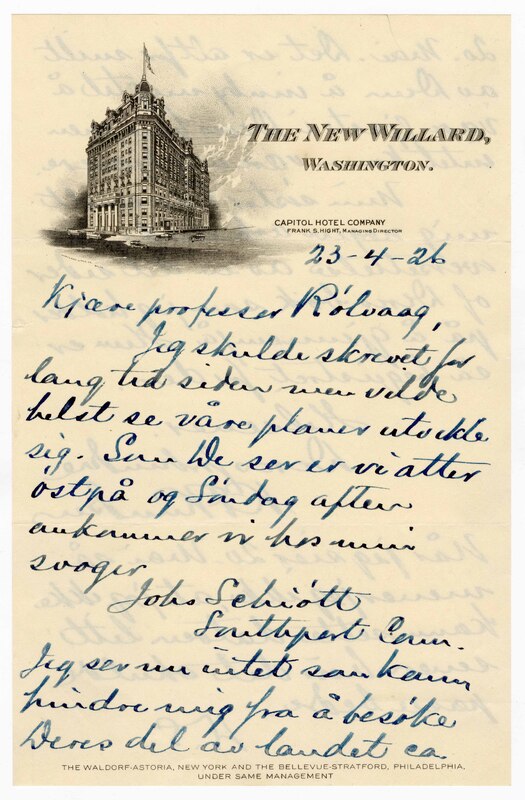 THE NEW WILLARD,
WASHINGTON.
CAPITOL HOTEL COMPANY
FRANK S. HIGHT, MANAGING DIRECTOR
23-4-26
Kjære professor Rölvaag,
Jeg skulde skrevet for
lang tid siden men vilde
helst se våre planer utvikle
sig. Som De ser er vi atter
østpå og Söndag aften
ankommer vi hos min
svoger
Johs Schiött
Southport Conn.
Jeg ser nu intet som kann
hindre mig fra å besøke
Deres del av landet ca.
THE WALDORF-ASTORIA, NEW YORK AND THE BELLEVUE-STRATFORD, PHILADELPHIA,
UNDER SAME MANAGEMENT